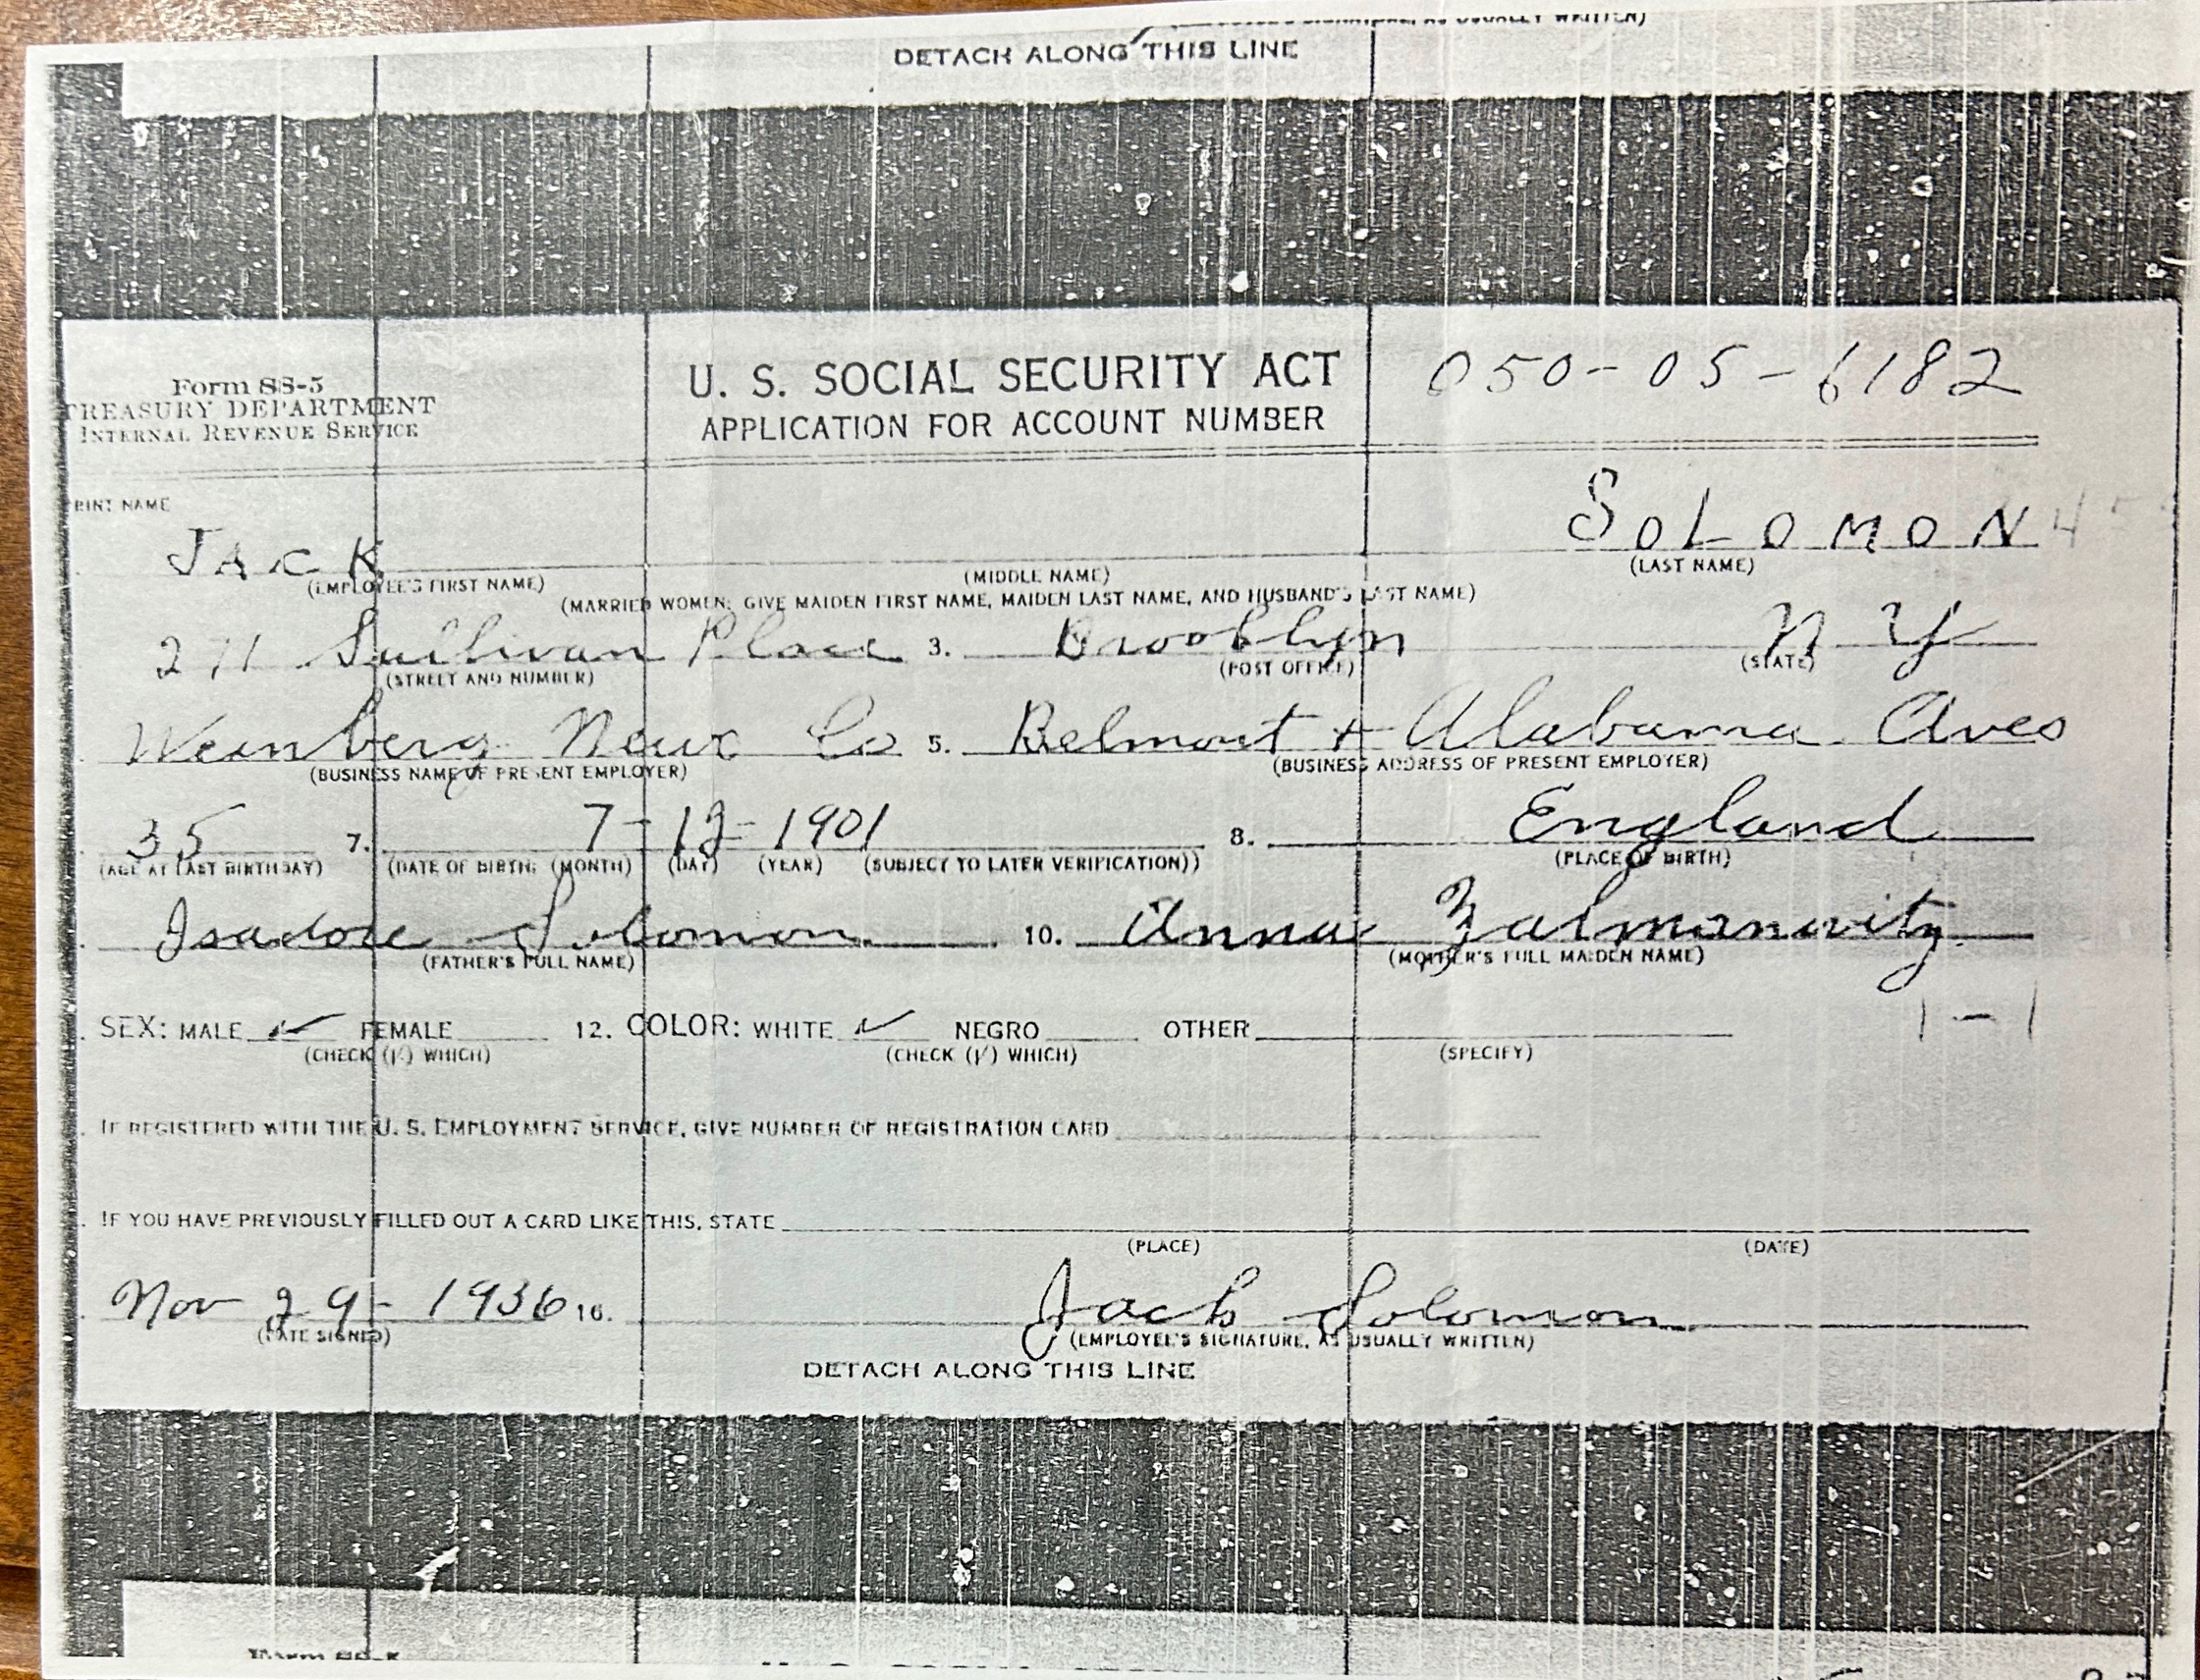 DETACH ALONG THIS LINE
Form SS-5
TREASURY DEPARTMENT
INTERNAL REVENUE SERVICE
U. S. SOCIAL SECURITY ACT
APPLICATION FOR ACCOUNT NUMBER
050-05-6182
RINT NAME
JACK SOLOMON 45
(EMPLOYEE'S FIRST NAME) (MIDDLE NAME) (LAST NAME)
(MARRIED WOMEN: GIVE MAIDEN FIRST NAME, MAIDEN LAST NAME, AND HUSBAND'S LAST NAME)
271 Sullivan Place 3. Brooklyn N Y
(STREET AND NUMBER) (POST OFFICE) (STATE)
Weinberg News Co 5. Belmont + Alabama Aves
(BUSINESS NAME OF PRESENT EMPLOYER) (BUSINESS ADDRESS OF PRESENT EMPLOYER)
35 7. 7-12-1901 8. England
(AGE AT LAST BIRTHDAY) (DATE OF BIRTH: (MONTH) (DAY) (YEAR) (SUBJECT TO LATER VERIFICATION)) (PLACE OF BIRTH)
Isadore Solomon 10. Anna Zalmanovitz
(FATHER'S FULL NAME) (MOTHER'S FULL MAIDEN NAME)
1-1
SEX: MALE ✓ FEMALE 12. COLOR: WHITE ✓ NEGRO OTHER
(CHECK (✓) WHICH) (CHECK (✓) WHICH) (SPECIFY)
IF REGISTERED WITH THE U. S. EMPLOYMENT SERVICE, GIVE NUMBER OF REGISTRATION CARD
IF YOU HAVE PREVIOUSLY FILLED OUT A CARD LIKE THIS, STATE
(PLACE) (DATE)
Nov 29-1936 16. Jack Solomon
(DATE SIGNED) (EMPLOYEE'S SIGNATURE, AS USUALLY WRITTEN)
DETACH ALONG THIS LINE
Form SS-5